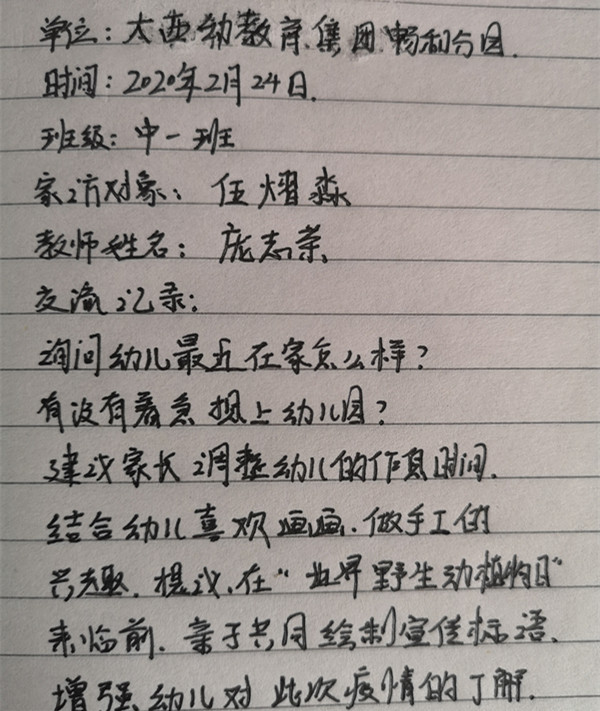 单位：大西幼教育集团畅和分园.
时间：2020年2月24日.
班级：中一班
家访对象：伍熠淼
教师姓名：庞志荣
交流记录：
询问幼儿最近在家怎么样？
有没有着急想上幼儿园？
建议家长调整幼儿的作息时间.
结合幼儿喜欢画画.做手工的
兴趣.提议.在“世界野生动植物日”
来临前.亲子共同绘制宣传标语.
增强幼儿对此次疫情的了解.